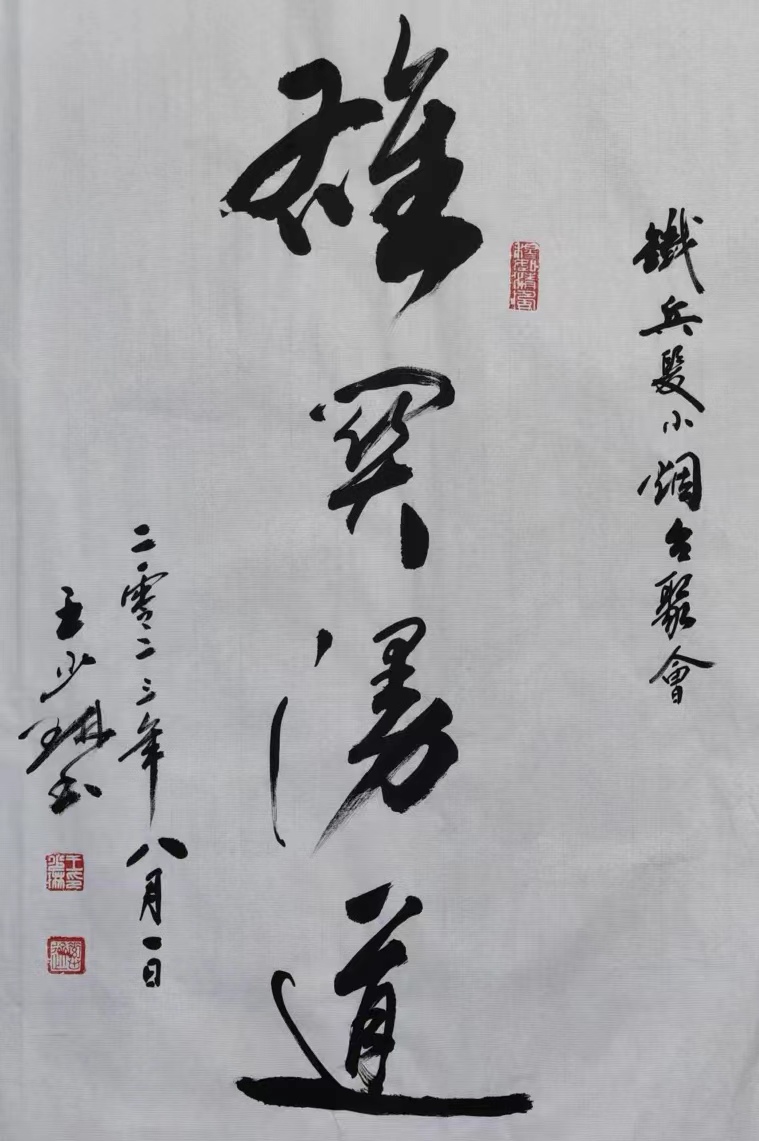 鐵兵髮小烟台聚會
雄關漫道
二零二三年八月一日
王少琳書